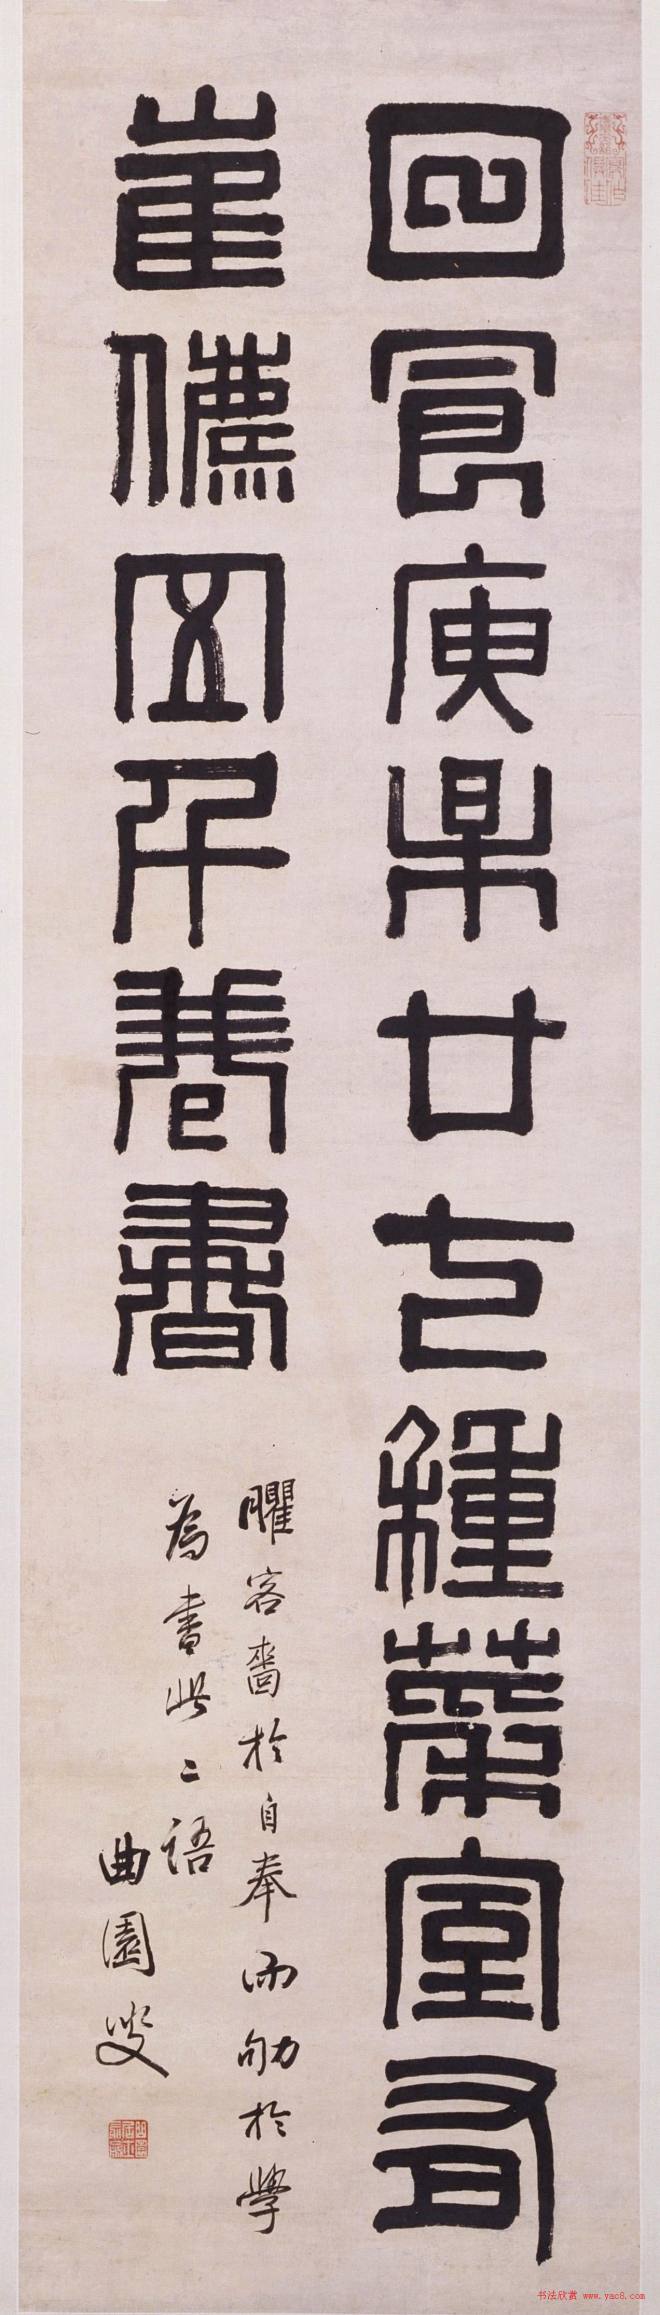 日食庾杲廿七種菜室有
崔儦五千卷書
臞客嗇於自奉而劬於學
為書此二語
曲園叟
书法欣赏 www.yac8.com